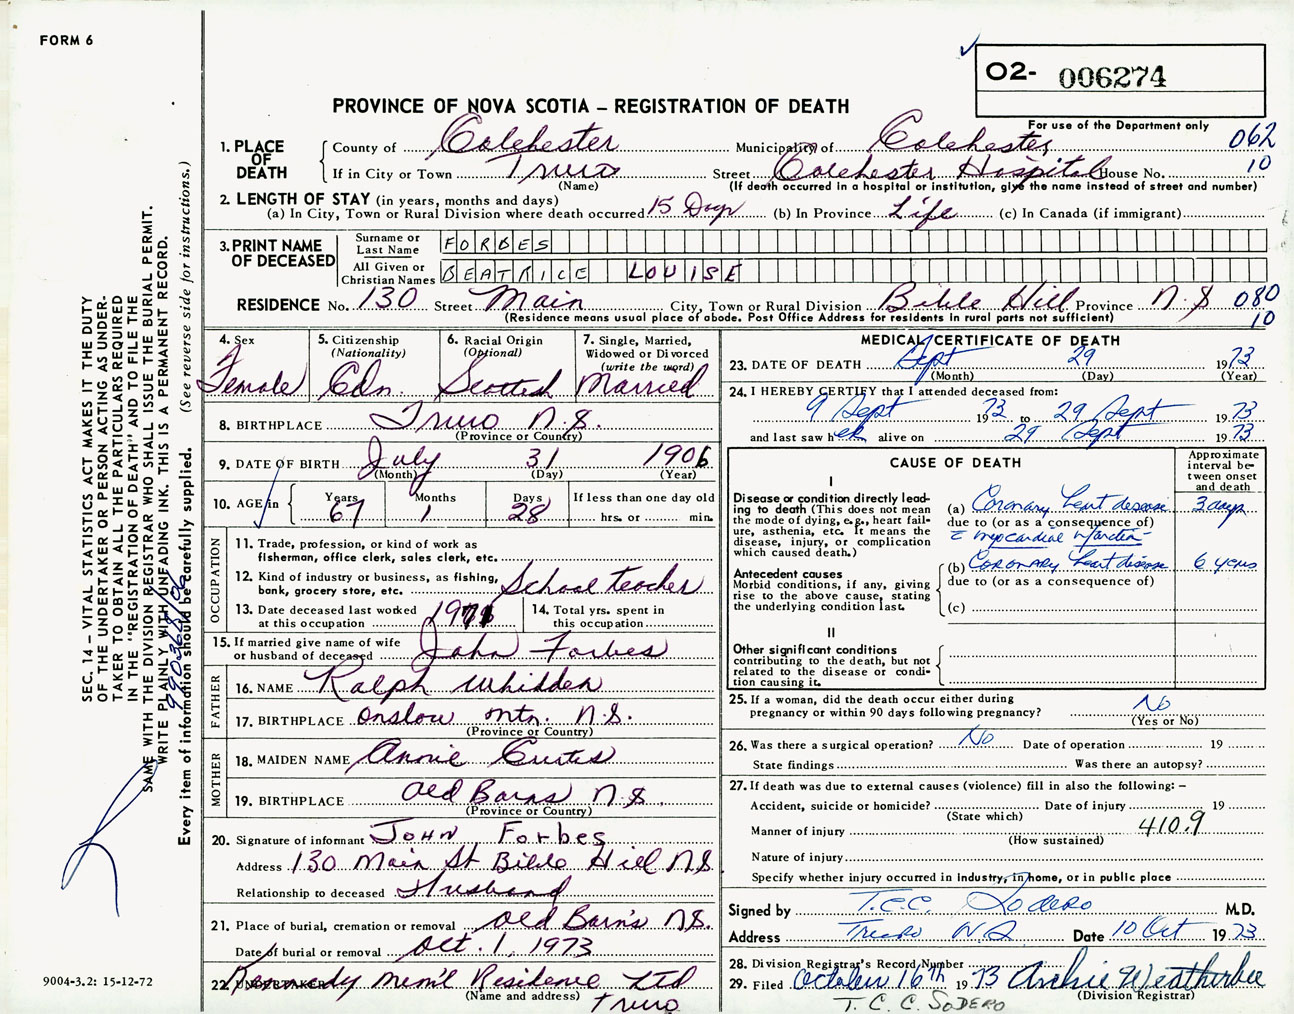 FORM 6
O2- 006274
PROVINCE OF NOVA SCOTIA – REGISTRATION OF DEATH
For use of the Department only
1. PLACE OF DEATH
County of Colchester Municipality of Colchester 062
If in City or Town Truro Street Colchester Hospital House No. 10
(Name) (If death occurred in a hospital or institution, give the name instead of street and number)
2. LENGTH OF STAY (in years, months and days)
(a) In City, Town or Rural Division where death occurred 15 Days (b) In Province Life (c) In Canada (if immigrant)
3. PRINT NAME OF DECEASED
Surname or Last Name FORBES
All Given or Christian Names BEATRICE LOUISE
RESIDENCE No. 130 Street Main City, Town or Rural Division Bible Hill Province N.S 080
(Residence means usual place of abode. Post Office Address for residents in rural parts not sufficient) 10
4. Sex
Female
5. Citizenship
(Nationality)
Cdn.
6. Racial Origin
(Optional)
Scottish
7. Single, Married,
Widowed or Divorced
(write the word)
Married
8. BIRTHPLACE Truro N.S.
(Province or Country)
9. DATE OF BIRTH July 31 1906
(Month) (Day) (Year)
10. AGE in Years Months Days If less than one day old
67 1 28 hrs. or min.
OCCUPATION
11. Trade, profession, or kind of work as
fisherman, office clerk, sales clerk, etc.
12. Kind of industry or business, as fishing,
bank, grocery store, etc. School teacher
13. Date deceased last worked
at this occupation 1971
14. Total yrs. spent in
this occupation
15. If married give name of wife
or husband of deceased John Forbes
FATHER
16. NAME Ralph Whidden
17. BIRTHPLACE Onslow Mtn. N.S.
(Province or Country)
MOTHER
18. MAIDEN NAME Annie Curtis
19. BIRTHPLACE Old Barns N.S.
(Province or Country)
20. Signature of informant JOHN Forbes
Address 130 Main St Bible Hill N.S
Relationship to deceased Husband
21. Place of burial, cremation or removal Old Barn's N.S.
Date of burial or removal Oct. 1, 1973
22. UNDERTAKER Mem'l Residence Ltd
(Name and address) Truro
MEDICAL CERTIFICATE OF DEATH
23. DATE OF DEATH Sept 29 1973
(Month) (Day) (Year)
24. I HEREBY CERTIFY that I attended deceased from:
9 Sept 1973 to 29 Sept 1973
and last saw her alive on 29 Sept 1973
CAUSE OF DEATH
Approximate interval between onset and death
I
Disease or condition directly lead-
ing to death (This does not mean
the mode of dying, e.g., heart fail-
ure, asthenia, etc. It means the
disease, injury, or complication
which caused death.)
(a) Coronary heart disease 3 days
due to (or as a consequence of)
c myocardial infarction
Antecedent causes
Morbid conditions, if any, giving
rise to the above cause, stating
the underlying condition last.
(b) Coronary heart disease 6 years
due to (or as a consequence of)
(c)
II
Other significant conditions
contributing to the death, but not
related to the disease or condi-
tion causing it.
25. If a woman, did the death occur either during
pregnancy or within 90 days following pregnancy? No
(Yes or No)
26. Was there a surgical operation? No Date of operation 19
State findings Was there an autopsy?
27. If death was due to external causes (violence) fill in also the following: –
Accident, suicide or homicide? Date of injury 19
(State which)
Manner of injury 410.9
(How sustained)
Nature of injury
Specify whether injury occurred in industry, in home, or in public place
Signed by T.C.C. Sodero M.D.
Address Truro N.S. Date 10 Oct 1973
28. Division Registrar's Record Number
29. Filed October 16th 1973 Archie Weatherbee
(Division Registrar)
T. C. C. SODERO
SEC. 14 – VITAL STATISTICS ACT MAKES IT THE DUTY
OF THE UNDERTAKER OR PERSON ACTING AS UNDER-
TAKER TO OBTAIN ALL THE PARTICULARS REQUIRED
IN THE "REGISTRATION OF DEATH" AND TO FILE THE
SAME WITH THE DIVISION REGISTRAR WHO SHALL ISSUE THE BURIAL PERMIT.
WRITE PLAINLY WITH UNFADING INK. THIS IS A PERMANENT RECORD.
Every item of information should be carefully supplied. (See reverse side for instructions.)
9004-3.2: 15-12-72